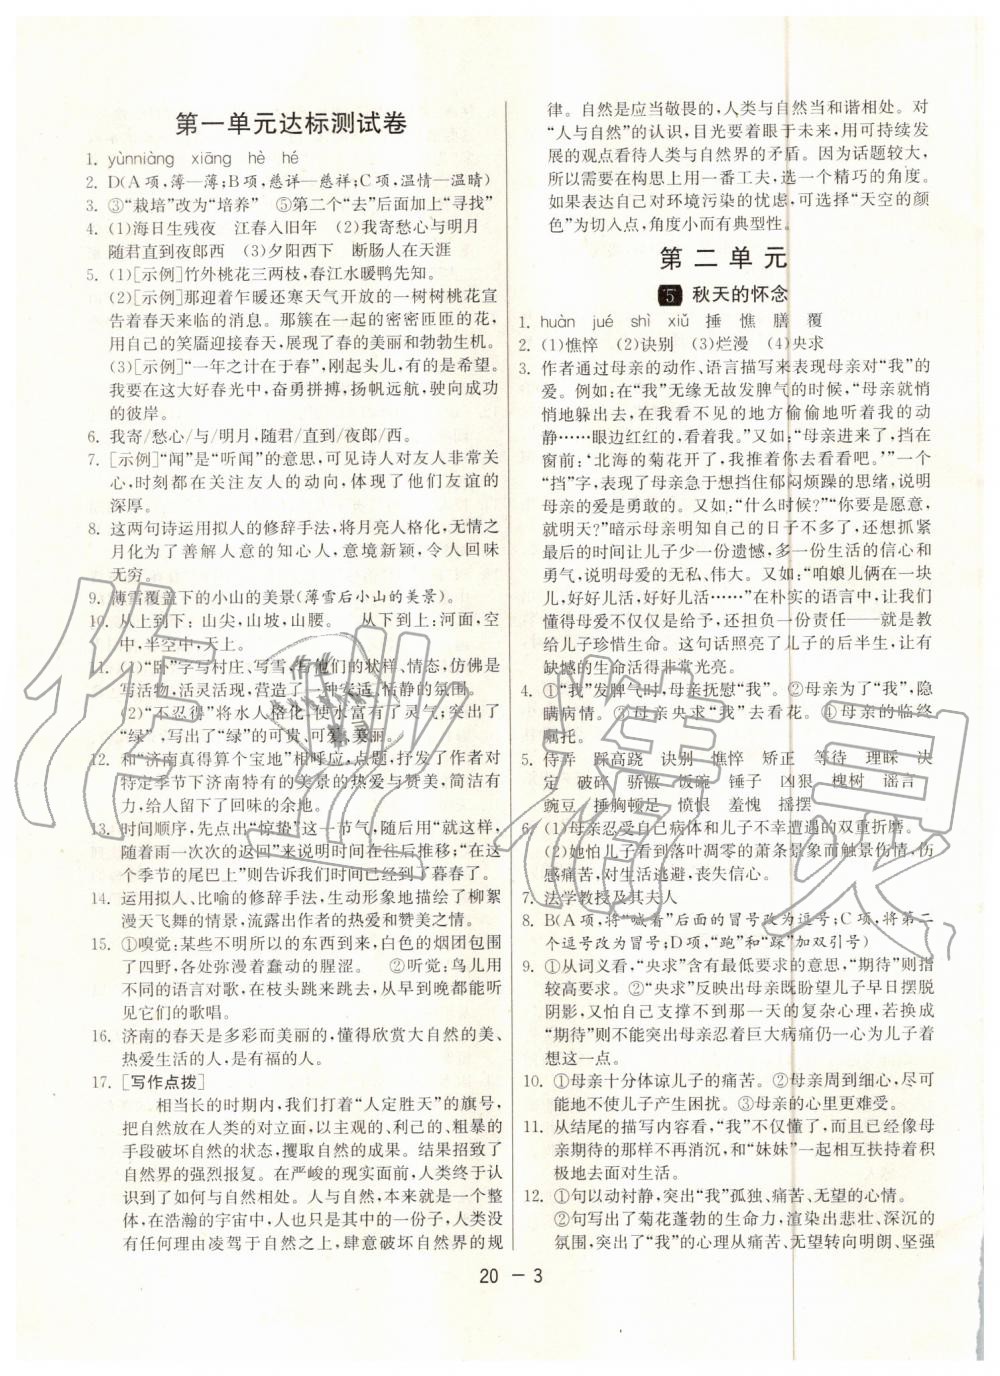 第一单元达标测试卷
1. yùnniàng xiāng hè hé
2. D(A项,簿—薄;B项,慈详—慈祥;C项,温情—温晴)
3. ③“栽培”改为“培养” ⑤第二个“去”后面加上“寻找”
4. (1)海日生残夜 江春入旧年 (2)我寄愁心与明月
随君直到夜郎西 (3)夕阳西下 断肠人在天涯
5. (1)[示例]竹外桃花三两枝,春江水暖鸭先知。
(2)[示例]那迎着乍暖还寒天气开放的一树树桃花宣
告着春天来临的消息。那簇在一起的密密匝匝的花,
用自己的笑靥迎接春天,展现了春的美丽和勃勃生机。
(3)[示例]“一年之计在于春”,刚起头儿,有的是希望。
我要在这大好春光中,奋勇拼搏,扬帆远航,驶向成功
的彼岸。
6. 我寄/愁心/与/明月,随君/直到/夜郎/西。
7. [示例]“闻”是“听闻”的意思,可见诗人对友人非常关
心,时刻都在关注友人的动向,体现了他们友谊的
深厚。
8. 这两句诗运用拟人的修辞手法,将月亮人格化,无情之
月化为了善解人意的知心人,意境新颖,令人回味
无穷。
9. 薄雪覆盖下的小山的美景(薄雪后小山的美景)。
10. 从上到下:山尖,山坡,山腰。 从下到上:河面,空
中,半空中,天上。
11. (1)“卧”字写村庄、写雪,写他们的状样、情态,仿佛是
写活物,活灵活现,营造了一种安适、恬静的氛围。
(2)“不忍得”将水人格化,使水富有了灵气;突出了
“绿”,写出了“绿”的可贵、可爱、美丽。
12. 和“济南真得算个宝地”相呼应,点题,抒发了作者对
特定季节下济南特有的美景的热爱与赞美,简洁有
力,给人留下了回味的余地。
13. 时间顺序,先点出“惊蛰”这一节气,随后用“就这样,
随着雨一次次的返回”来说明时间在往后推移;“在这
个季节的尾巴上”则告诉我们时间已经到了暮春了。
14. 运用拟人、比喻的修辞手法,生动形象地描绘了柳絮
漫天飞舞的情景,流露出作者的热爱和赞美之情。
15. ①嗅觉:某些不明所以的东西到来,白色的烟团包围
了四野,各处弥漫着蠢动的腥涩。 ②听觉:鸟儿用
不同的语言对歌,在枝头跳来跳去,从早到晚都能听
见它们的歌唱。
16. 济南的春天是多彩而美丽的,懂得欣赏大自然的美、
热爱生活的人,是有福的人。
17. [写作点拨]
相当长的时期内,我们打着“人定胜天”的旗号,
把自然放在人类的对立面,以主观的、利己的、粗暴的
手段破坏自然的状态,攫取自然的成果。结果招致了
自然界的强烈报复。在严峻的现实面前,人类终于认
识到了如何与自然相处。人与自然,本来就是一个整
体,在浩瀚的宇宙中,人也只是其中的一分子,人类没
有任何理由凌驾于自然之上,肆意破坏自然界的规
律。自然是应当敬畏的,人类与自然当和谐相处。对
“人与自然”的认识,目光要着眼于未来,用可持续发展
的观点看待人类与自然界的矛盾。因为话题较大,
所以需要在构思上用一番工夫,选一个精巧的角度。
如果表达自己对环境污染的忧虑,可选择“天空的颜
色”为切入点,角度小而有典型性。
第二单元
5 秋天的怀念
1. huàn jué shì xiǔ 捶 憔 膳 覆
2. (1)憔悴 (2)诀别 (3)烂漫 (4)央求
3. 作者通过母亲的动作、语言描写来表现母亲对“我”的
爱。例如:在“我”无缘无故发脾气的时候,“母亲就悄
悄地躲出去,在我看不见的地方偷偷地听着我的动
静……眼边红红的,看着我。”又如:“母亲进来了,挡在
窗前:‘北海的菊花开了,我推着你去看看吧。’”一个
“挡”字,表现了母亲急于想挡住郁闷烦躁的思绪,说明
母亲的爱是勇敢的。又如:“什么时候?”“你要是愿意,
就明天?”暗示母亲明知自己的日子不多了,还想抓紧
最后的时间让儿子少一份遗憾,多一份生活的信心和
勇气,说明母爱的无私、伟大。又如:“咱娘儿俩在一块
儿,好好儿活,好好儿活……”在朴实的语言中,让我们
懂得母爱不仅仅是给予,还担负一份责任——就是要
教给儿子珍惜生命。这句话照亮了儿子的后半生,让有
缺憾的生命活得非常光亮。
4. ①“我”发脾气时,母亲抚慰“我”。②母亲为了“我”,隐
瞒病情。③母亲央求“我”去看花。④母亲的临终
嘱托。
5. 侍弄 踩高跷 诀别 憔悴 矫正 等待 理睬 决
定 破碎 骄傲 饭碗 锤子 凶狠 槐树 谣言
豌豆 捶胸顿足 愤恨 羞愧 摇摆
6. (1)母亲忍受自己病体和儿子不幸遭遇的双重折磨。
(2)她怕儿子看到落叶凋零的萧条景象而触景伤情,伤
感痛苦,对生活逃避,丧失信心。
7. 法学教授及其夫人
8. B(A项,将“喊着”后面的冒号改为逗号;C项,将第二
个逗号改为冒号;D项,“跑”和“踩”加双引号)
9. ①从词义看,“央求”含有最低要求的意思,“期待”则指
较高要求。②“央求”反映出母亲既盼望儿子早日摆脱
阴影,又怕自己支撑不到那一天的复杂心理,若换成
“期待”则不能突出母亲忍着巨大病痛仍一心为儿子着
想这一点。
10. ①母亲十分体谅儿子的痛苦。②母亲周到细心,尽可
能地不使儿子产生困扰。③母亲的心里更难受。
11. 从结尾的描写内容看,“我”不仅懂了,而且已经像母
亲期待的那样不再消沉,和“妹妹”一起相互扶持着积
极地去面对生活。
12. ①句以动衬静,突出“我”孤独、痛苦、无望的心情。
②句写出了菊花蓬勃的生命力,渲染出悲壮、深沉的
氛围,突出了“我”的心理从痛苦、无望转向明朗、坚强
20 - 3
作业精灵